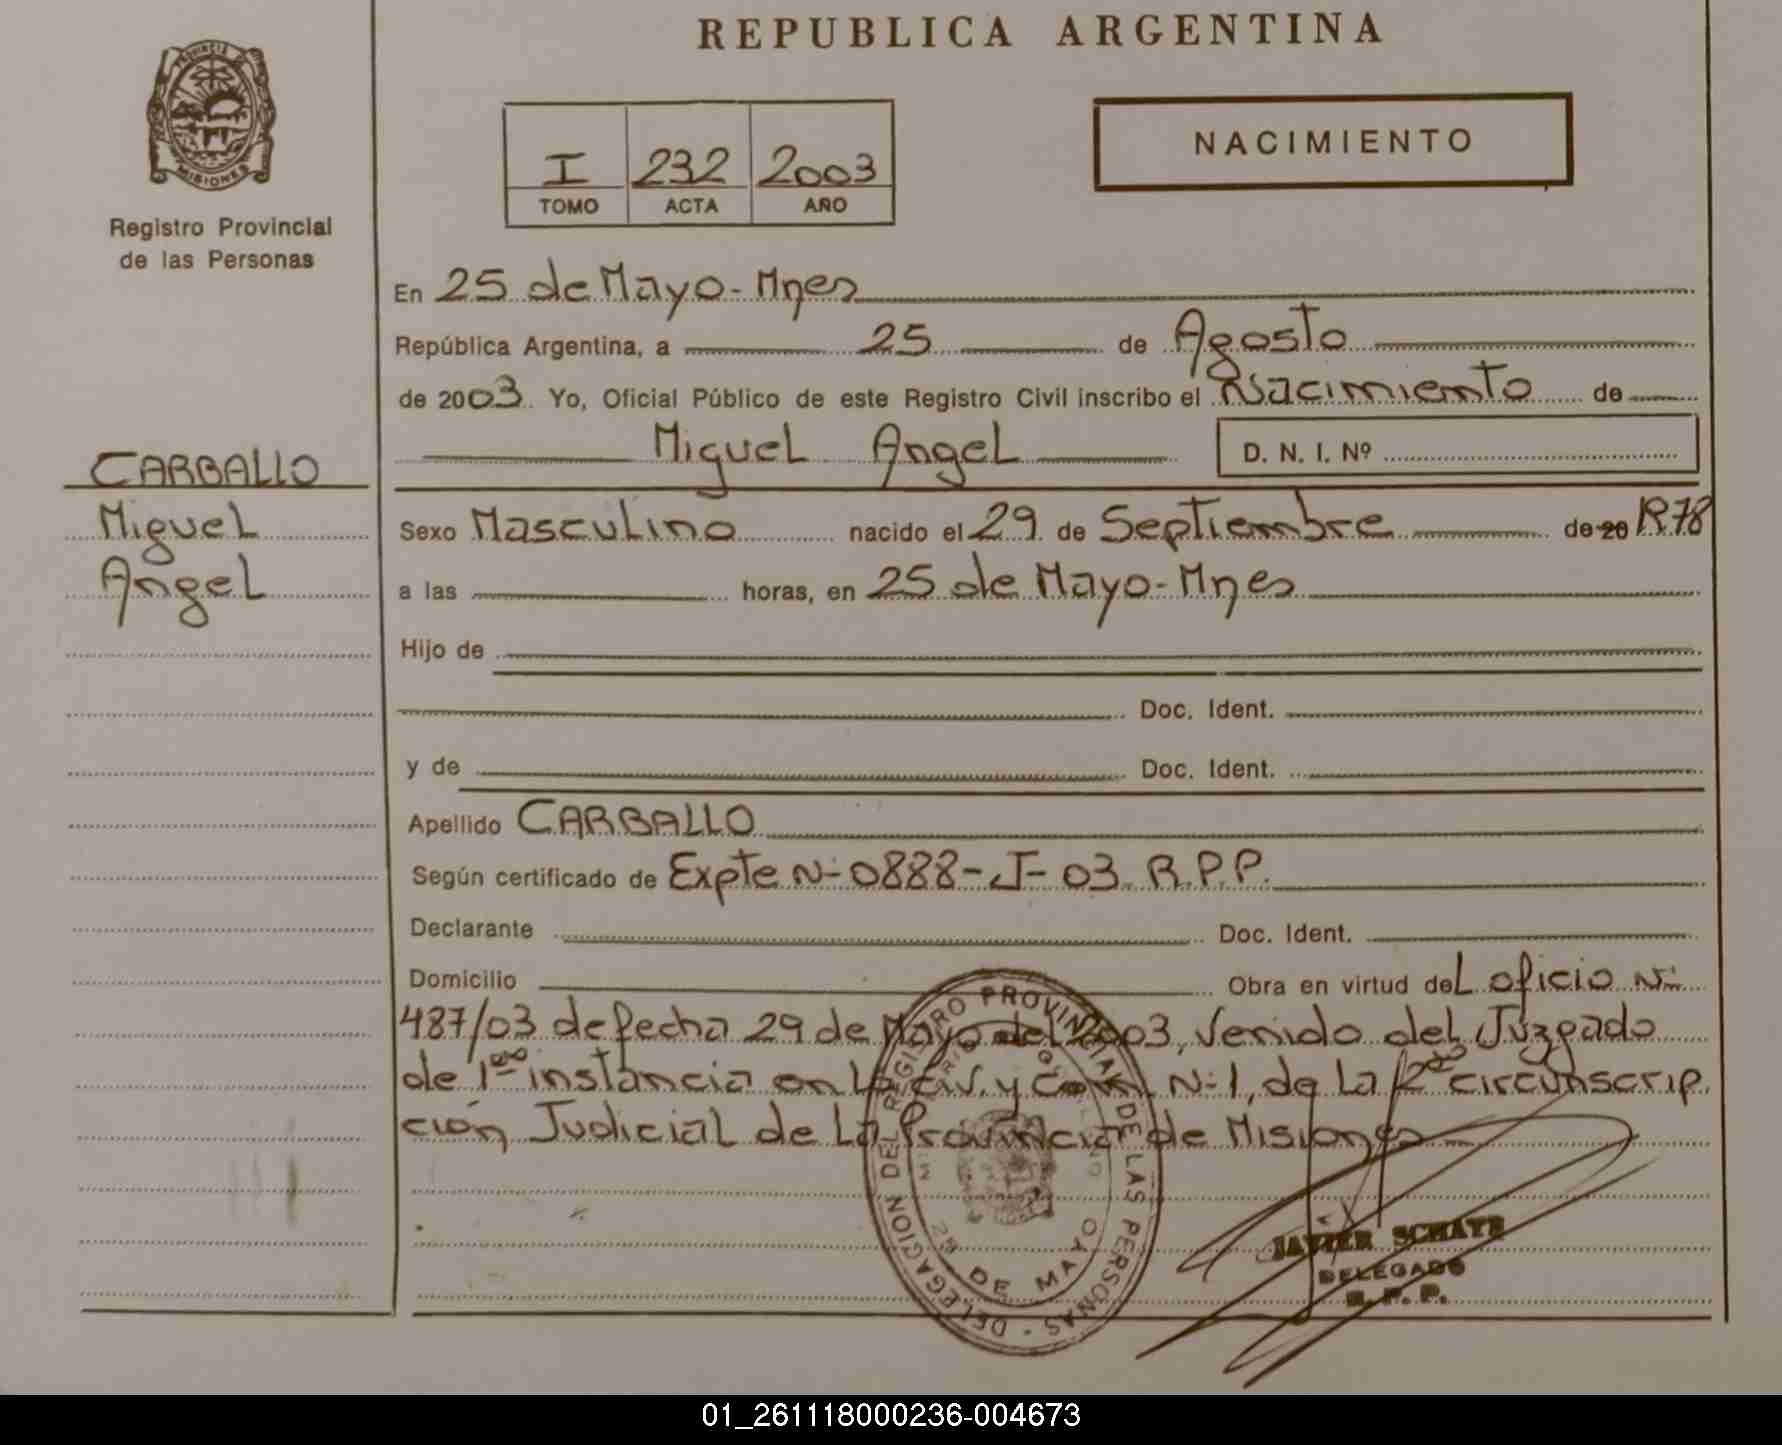 REPUBLICA ARGENTINA
PROVINCIA DE
MISIONES
Registro Provincial
de las Personas
I 232 2003
TOMO ACTA AÑO
NACIMIENTO
En 25 de Mayo - Mnes
República Argentina, a 25 de Agosto
de 2003. Yo, Oficial Público de este Registro Civil inscribo el Nacimiento de
Miguel Angel D. N. I. Nº
CARBALLO
Miguel
Angel
Sexo Masculino nacido el 29 de Septiembre de 20 1978
a las horas, en 25 de Mayo - Mnes
Hijo de
Doc. Ident.
y de Doc. Ident.
Apellido CARBALLO
Según certificado de Expte N- 0888-J-03 R.P.P.
Declarante Doc. Ident.
Domicilio Obra en virtud del oficio N-
487/03 de fecha 29 de Mayo del 2003, Venido del Juzgado
de 1ra instancia en Lo Civ. y Com. N-1, de La 2da circunscrip
ción Judicial de La Provincia de Misiones
DELEGACION DEL REGISTRO PROVINCIAL DE LAS PERSONAS
25 DE MAYO
JAVIER
DELEGADO
R. P. P.
01_261118000236-004673